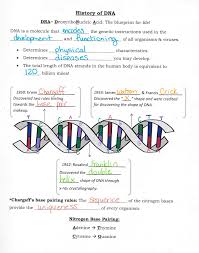 History of DNA
DNA- Deoxyribonucleic Acid: The blueprint for life!
DNA is a molecule that encodes the genetic instructions used in the
development and functioning of all organisms & viruses.
• Determines physical characteristics.
• Determines diseases you may develop.
• The total length of DNA strands in the human body is equivalent to
120 billion miles!
1950: Erwin Chargaff
Discovered two rules leading
towards base pair
makeup.
1953: James Watson & Francis Crick
Discovered the "X" shape and were credited
for discovering the shape of DNA
1952: Rosalind Franklin
Discovered the double
helix shape of DNA through
x-ray crystallography.
*Chargaff's base pairing rules: The sequence of the nitrogen bases
provide the uniqueness of every organism.
Nitrogen Base Pairing:
Adenine → Thymine
Cytosine → Guanine